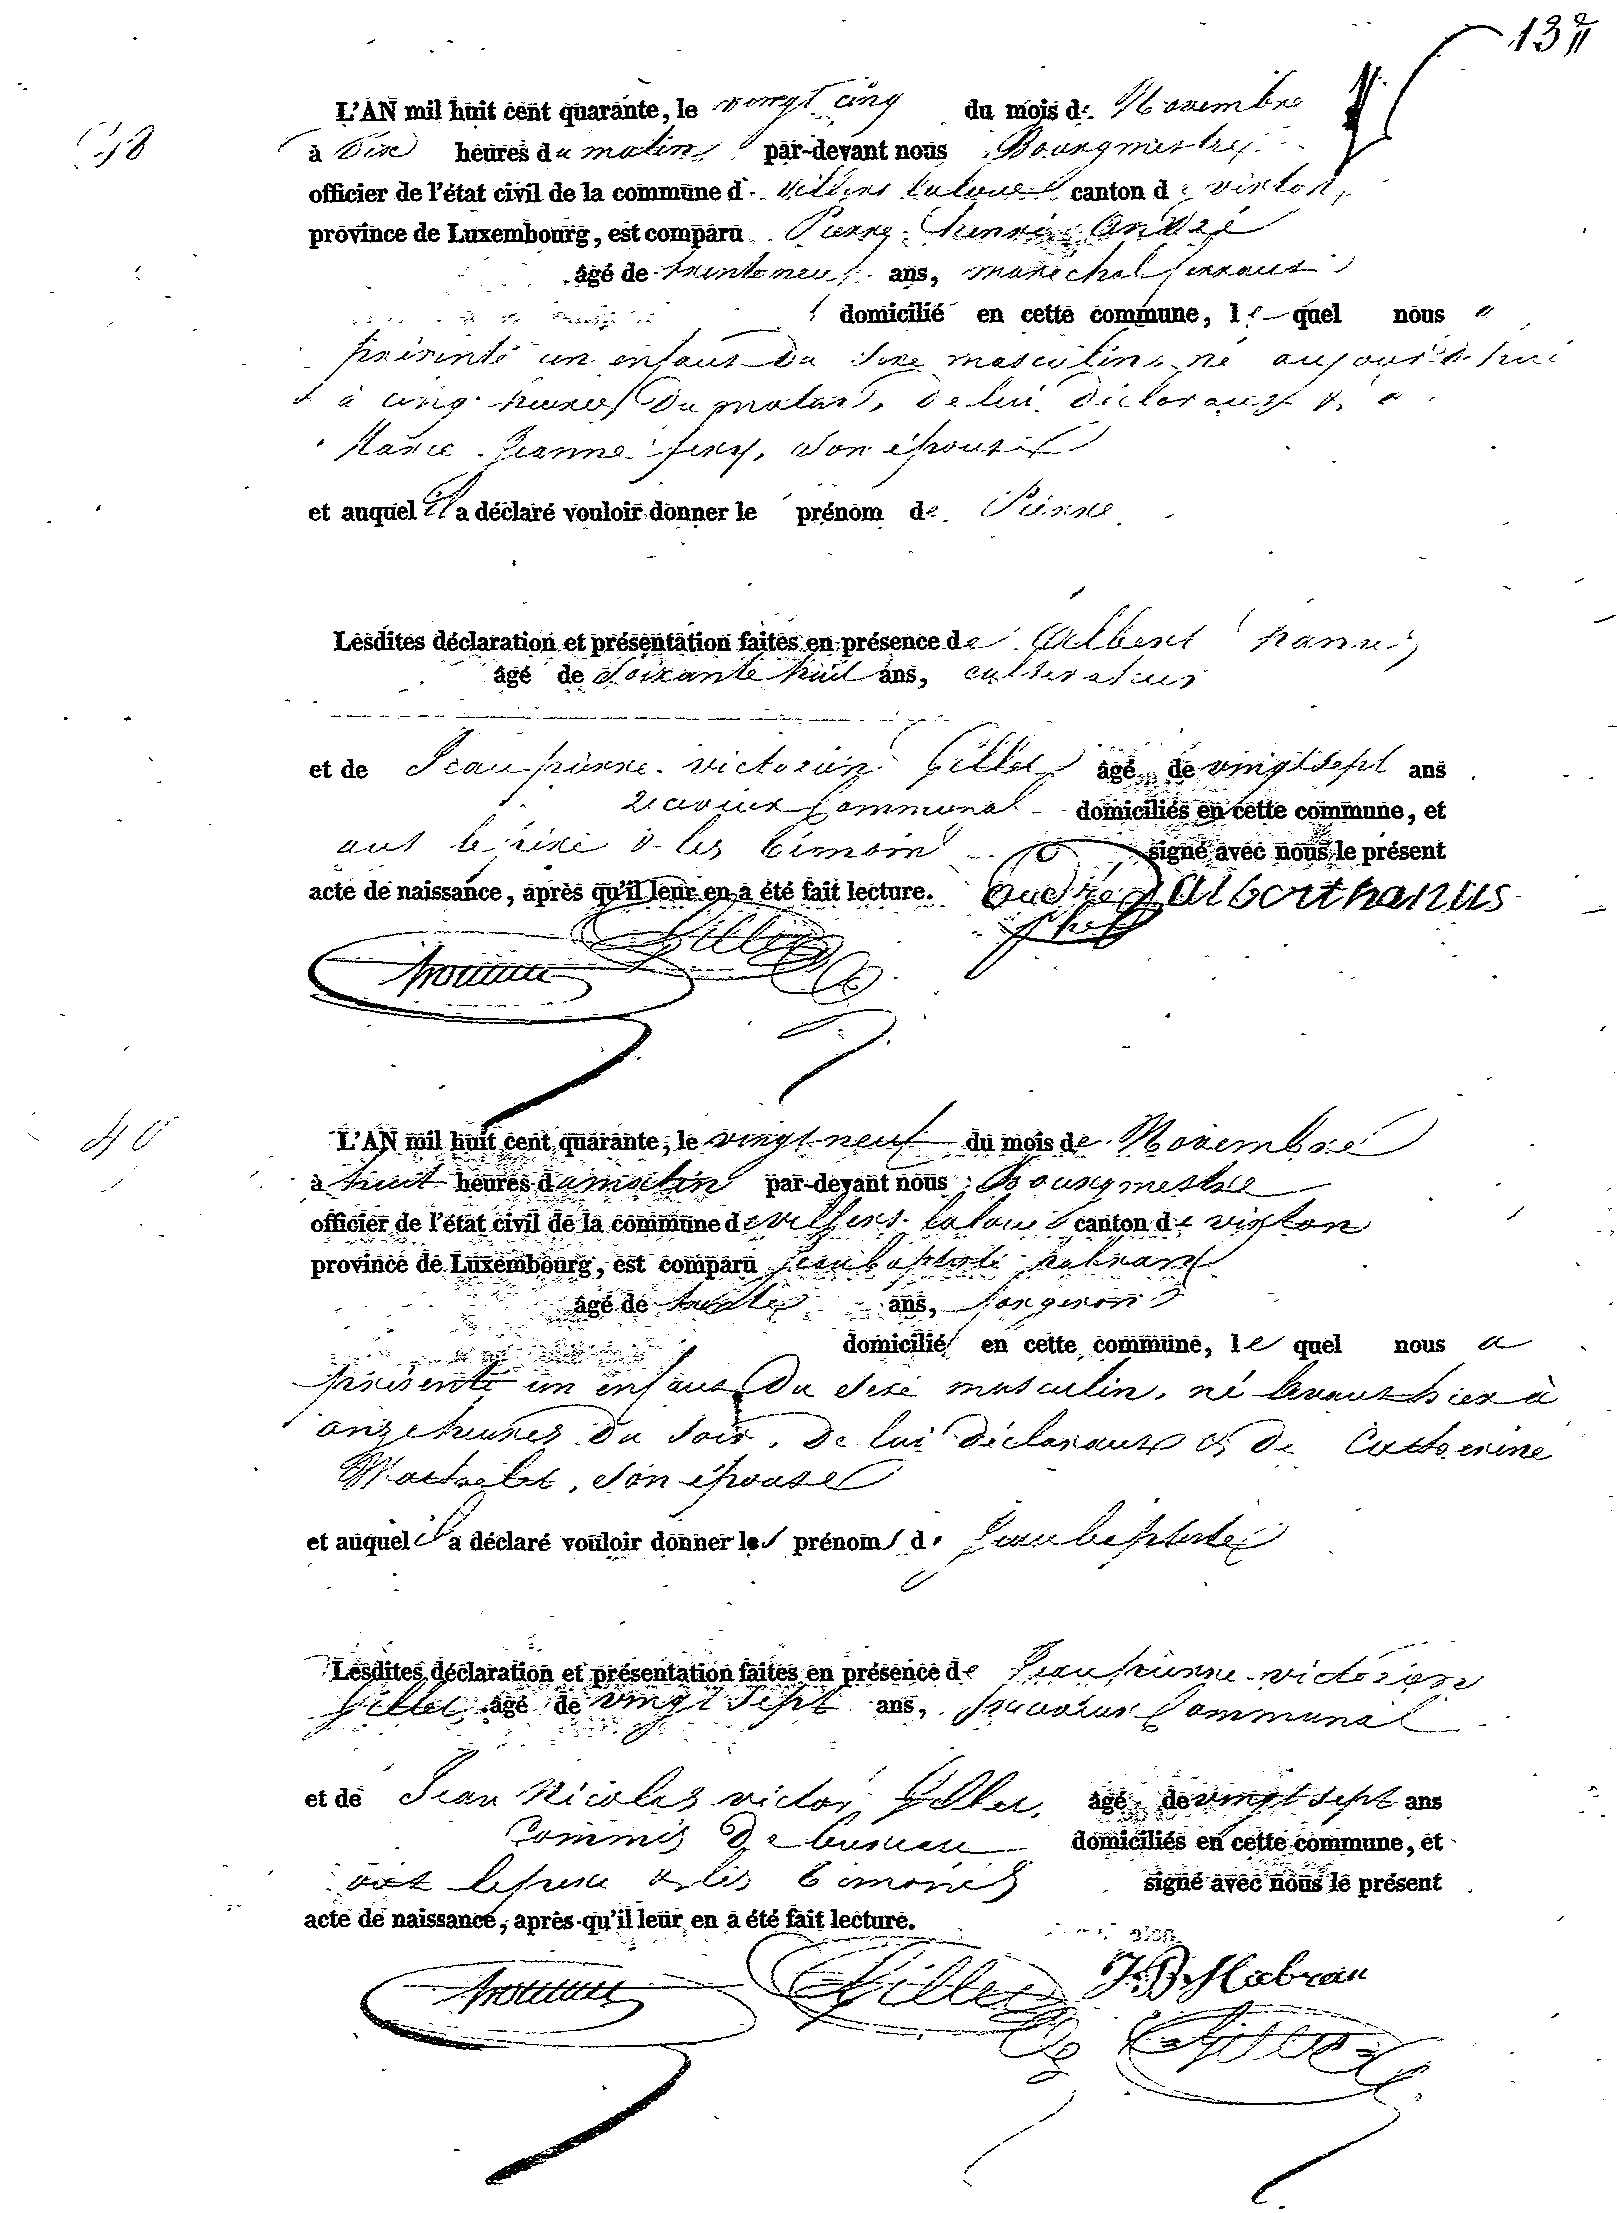 13
L'AN mil huit cent quarante, le vingt cinq du mois de Novembre
à dix heures du matin par-devant nous Bourgmestre
officier de l'état civil de la commune de Villers latour canton de virton,
province de Luxembourg, est comparu Pierre henri André
âgé de trente neuf ans, marechal ferrant
domicilié en cette commune, le quel nous a
présenté un enfant du sexe masculin né aujourd'hui
à cinq heures du matin, de lui déclarant &
Marie Jeanne fery, son épouse
et auquel il a déclaré vouloir donner le prénom de Pierre
Lesdites déclaration et présentation faites en présence de Albert
âgé de soixante huit ans, cultivateur
et de Jean pierre victorien Gillet âgé de vingt sept ans
receveur Communal domiciliés en cette commune, et
ont le père & les témoins signé avec nous le présent
acte de naissance, après qu'il leur en a été fait lecture. André Albert hanus
Gillet
40
L'AN mil huit cent quarante, le vingt neuf du mois de Novembre
à huit heures du matin par-devant nous Bourgmestre
officier de l'état civil de la commune de villers latour canton de virton
province de Luxembourg, est comparu jean baptiste habran
âgé de trente ans, forgeron
domicilié en cette commune, le quel nous a
présenté un enfant du sexe masculin, né avant hier à
onze heures du soir, de lui déclarant & de Catherine
son épouse
et auquel il a déclaré vouloir donner les prénoms de jean baptiste
Lesdites déclaration et présentation faites en présence de Jean pierre victorien
Gillet âgé de vingt sept ans, receveur Communal
et de Jean Nicolas victor Gillet, âgé de vingt sept ans
Commis de bureau domiciliés en cette commune, et
ont le père & les témoins signé avec nous le présent
acte de naissance, après qu'il leur en a été fait lecture.
Gillet J.B. Habran